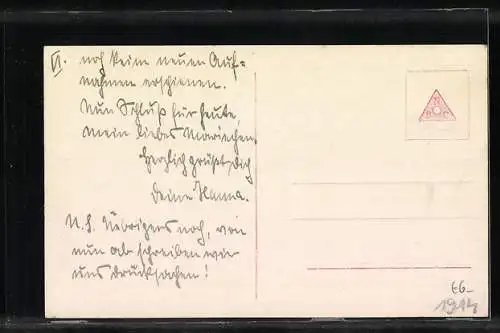 VI. noch keine neuen Auf-
nahmen erschienen.
Nun Schluß für heute,
mein liebes Mariechen.
Herzlich grüßt Dich
Deine Hanna.
N.S. Übrigens noch, von
nun ab schreiben wir
uns Drucksachen!
N
B C
E6-
1914